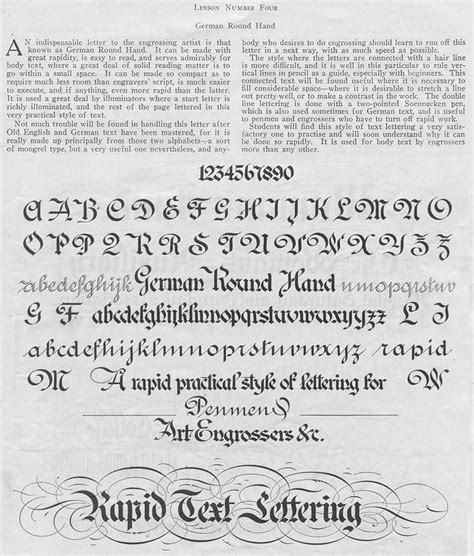 Lesson Number Four
German Round Hand
AN indispensable letter to the engrossing artist is that
known as German Round Hand. It can be made with
great rapidity, is easy to read, and serves admirably for
body text, where a great deal of solid reading matter is to
go within a small space. It can be made so compact as to
require much less room than engravers' script, is much easier
to execute, and if anything, even more rapid than the latter.
It is used a great deal by illuminators where a start letter is
richly illuminated, and the rest of the page lettered in this
very practical style of text.
Not much will be found in handling this letter after
Old English and German text have been mastered, for it is
really made up principally from those two alphabets—a sort
of mongrel type, but a very useful one nevertheless, and any-
body who desires to do engrossing should learn to run off this
letter in a neat way, with as much speed as possible.
The style where the letters are connected with a hair line
is more difficult, and it is well in this particular to rule ver-
tical lines in pencil as a guide, especially with beginners. This
connected text will be found useful where it is necessary to
fill considerable space—where it is desirable to stretch a line
out pretty well, or to make a contrast in the work. The double
line lettering is done with a two-pointed Soennecken pen,
which is also used sometimes for German text, and is useful
to penmen and engrossers who have to turn off rapid work.
Students will find this style of text lettering a very satis-
factory one to practise and will soon understand why it can
be done so rapidly. It is used for body text by engrossers
more than any other.
1234567890
A B C D E F G H I J K L M N O
O P P Q R R S T U V W X Y Z Z
abcdefghijk German Round Hand mnopqrstuv
G F abcdefghijklmnopqrstuvwxyzz L I
abcdefghijklmnopqrstuvwxyz rapid
M A rapid practical style of lettering for W
Penmen
Art Engrossers &c.
Rapid Text Lettering